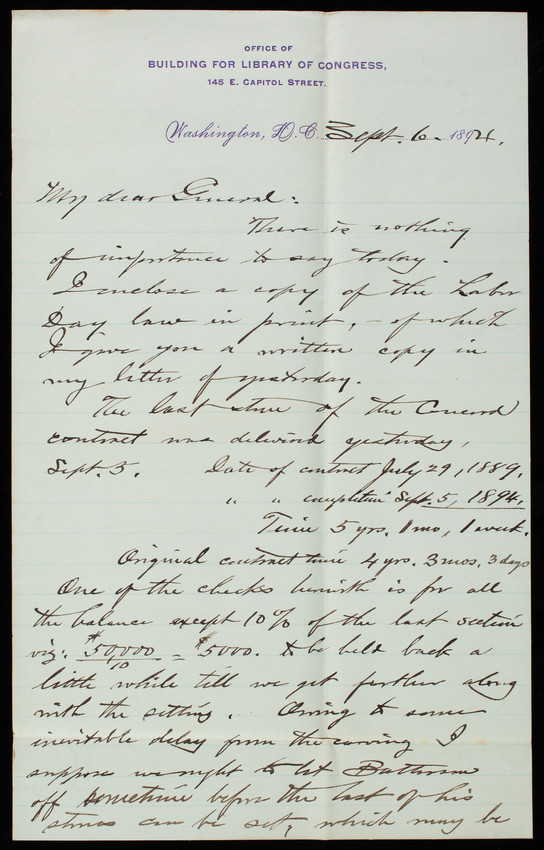 OFFICE OF
BUILDING FOR LIBRARY OF CONGRESS,
145 E. CAPITOL STREET.
Washington, D. C. Sept. 6. 1894.
My dear General:
There is nothing
of importance to say today.
I enclose a copy of the Labor
Day law in print, - of which
I gave you a written copy in
my letter of yesterday.
The last stone of the Concord
contract was delivered yesterday,
Sept. 5. Date of contract July 29, 1889.
" " completion Sept. 5, 1894,
Time 5 yrs. 1 mo, 1 week.
Original contract time 4 yrs. 3 mos. 3 days
One of the checks herewith is for all
the balance except 10% of the last section
viz: $50,000/10 = $5000. to be held back a
little while till we get further along
with the setting. Owing to some
inevitable delay from the carving I
suppose we ought to let Batterson
off sometime before the last of his
stones can be set, which may be